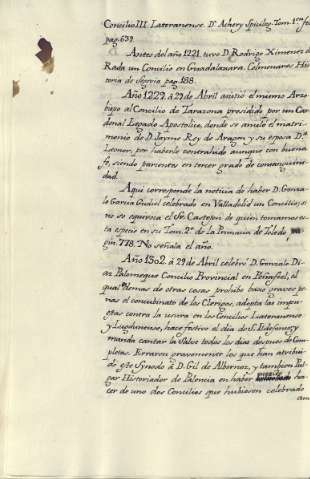 Concilio III. Lateranense. Dn. Achery Spicileg. Tom. 1.
pag. 639.
Antes del año 1221. tuvo D. Rodrigo Ximenez de
Rada un Concilio en Guadalaxara. Colmenares His
toria de Segovia pag. 188.
Año 1229. a 29 de Abril asistió el mismo Arzo
bispo al Concilio de Tarazona presidido por un Car
denal Legado Apostolico, donde se anuló el matri
monio de D. Jayme Rey de Aragon y su esposa D.ª
Leonor, por haberle contrahido aunque con buena
fe, siendo parientes en tercer grado de consanguini
dad.
Aqui corresponde la noticia de haber D. Gonza
lo Garcia Gudiel celebrado en Valladolid un Concilio, si
no se equivoca el Sr. Castejon de quien tomamos es
ta especie en su Tom. 2.º de la Primacia de Toledo,
pag. 778. No señala el año.
Año 1302. a 29 de Abril celebró D. Gonzalo Di
az Palomeque Concilio Provincial en Peñafiel, el
qual demas de otras cosas prohibe baxo graves pe
nas el concubinato de los Clerigos, adopta las
contra la usura en los Concilios Lateranense
y Lugdunense, hace festivo el dia de S. Ildefonso, y
manda cantar la Salve todos los dias despues de Com
pletas. Erraron gravemente los que han atribui
do este Synodo a D. Gil de Albornoz, y tambien Pul
gar Historiador de Palencia en haber ha
cer de uno dos Concilios que hubiesen celebrado